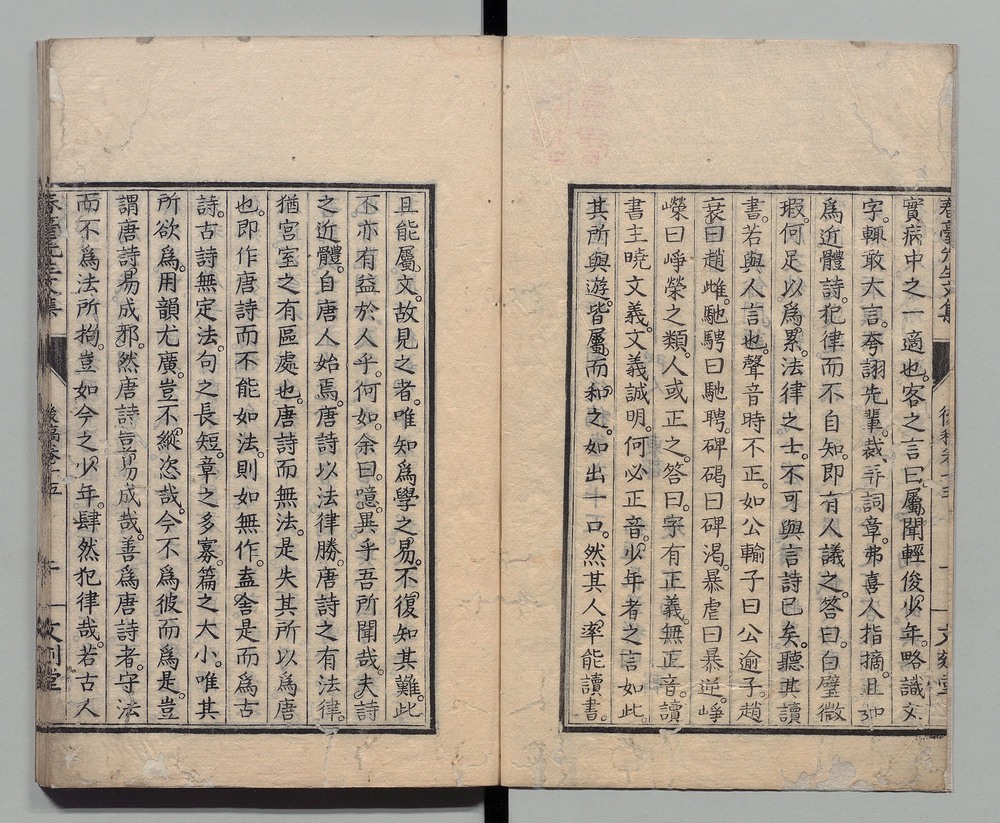 春臺先生文集
後稿卷十五
文刻堂
實病中之一適也。客之言曰屬聞輕俊少年。略識文
字。輒敢大言。夸詡先輩。裁弄詞章。弗喜人指摘。且如
爲近體詩。犯律而不自知。即有人議之。答曰。白璧微
瑕。何足以爲累。法律之士。不可與言詩已矣。聽其讀
書。若與人言也。聲音時不正。如公輸子曰公逾子。趙
衰曰趙雌。馳騁曰馳聘。碑碣曰碑渴。暴虐曰暴逆。崢
嶸曰崢榮之類。人或正之。答曰。字有正義。無正音。讀
書主曉文義。文義誠明。何必正音。少年者之言如此。
其所與遊。皆屬而和之。如出一口。然其人。率能讀書。
且能屬文。故見之者。唯知爲學之易。不復知其難。此
不亦有益於人乎。何如。余曰。噫。異乎吾所聞哉。夫詩
之近體。自唐人始焉。唐詩以法律勝。唐詩之有法律。
猶宮室之有區處也。唐詩而無法。是失其所以爲唐
也。即作唐詩而不能如法。則如無作。盍舍是而爲古
詩。古詩無定法。句之長短。章之多寡。篇之大小。唯其
所欲爲。用韻尤廣。豈不縱恣哉。今不爲彼而爲是。豈
謂唐詩易成邪。然唐詩豈易成哉。善爲唐詩者。守法
而不爲法所拘。豈如今之少年。肆然犯律哉。若古人
春臺先生文集
後稿卷十五
文刻堂